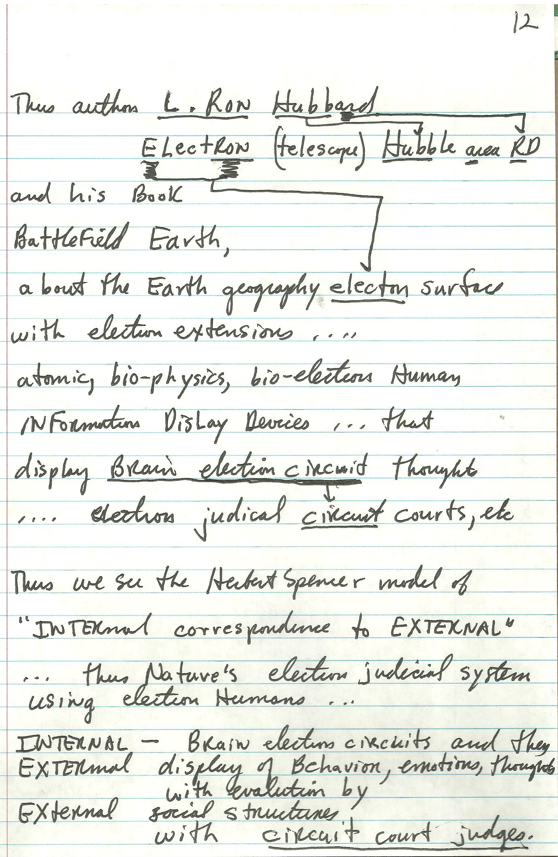 12
Thus author L. RON Hubbard
ELectRON (telescope) Hubble area RD
and his Book
BattleField Earth,
about the Earth geography electon surface
with electron extensions ....
atomic, bio-physics, bio-electron Human
INFormation Display Devices ... that
display Brain electron circuit thought
.... electron judical circuit courts, etc
Thus we see the Herbert Spencer model of
"INTERnal correspondence to EXTERNAL"
... thus Nature's electron judicial system
using electron Humans ...
INTERNAL — Brain electron circuits and they
EXTERnal display of Behavior, emotions, thoughts
with evalution by
EXternal social structures
with circuit court judges.